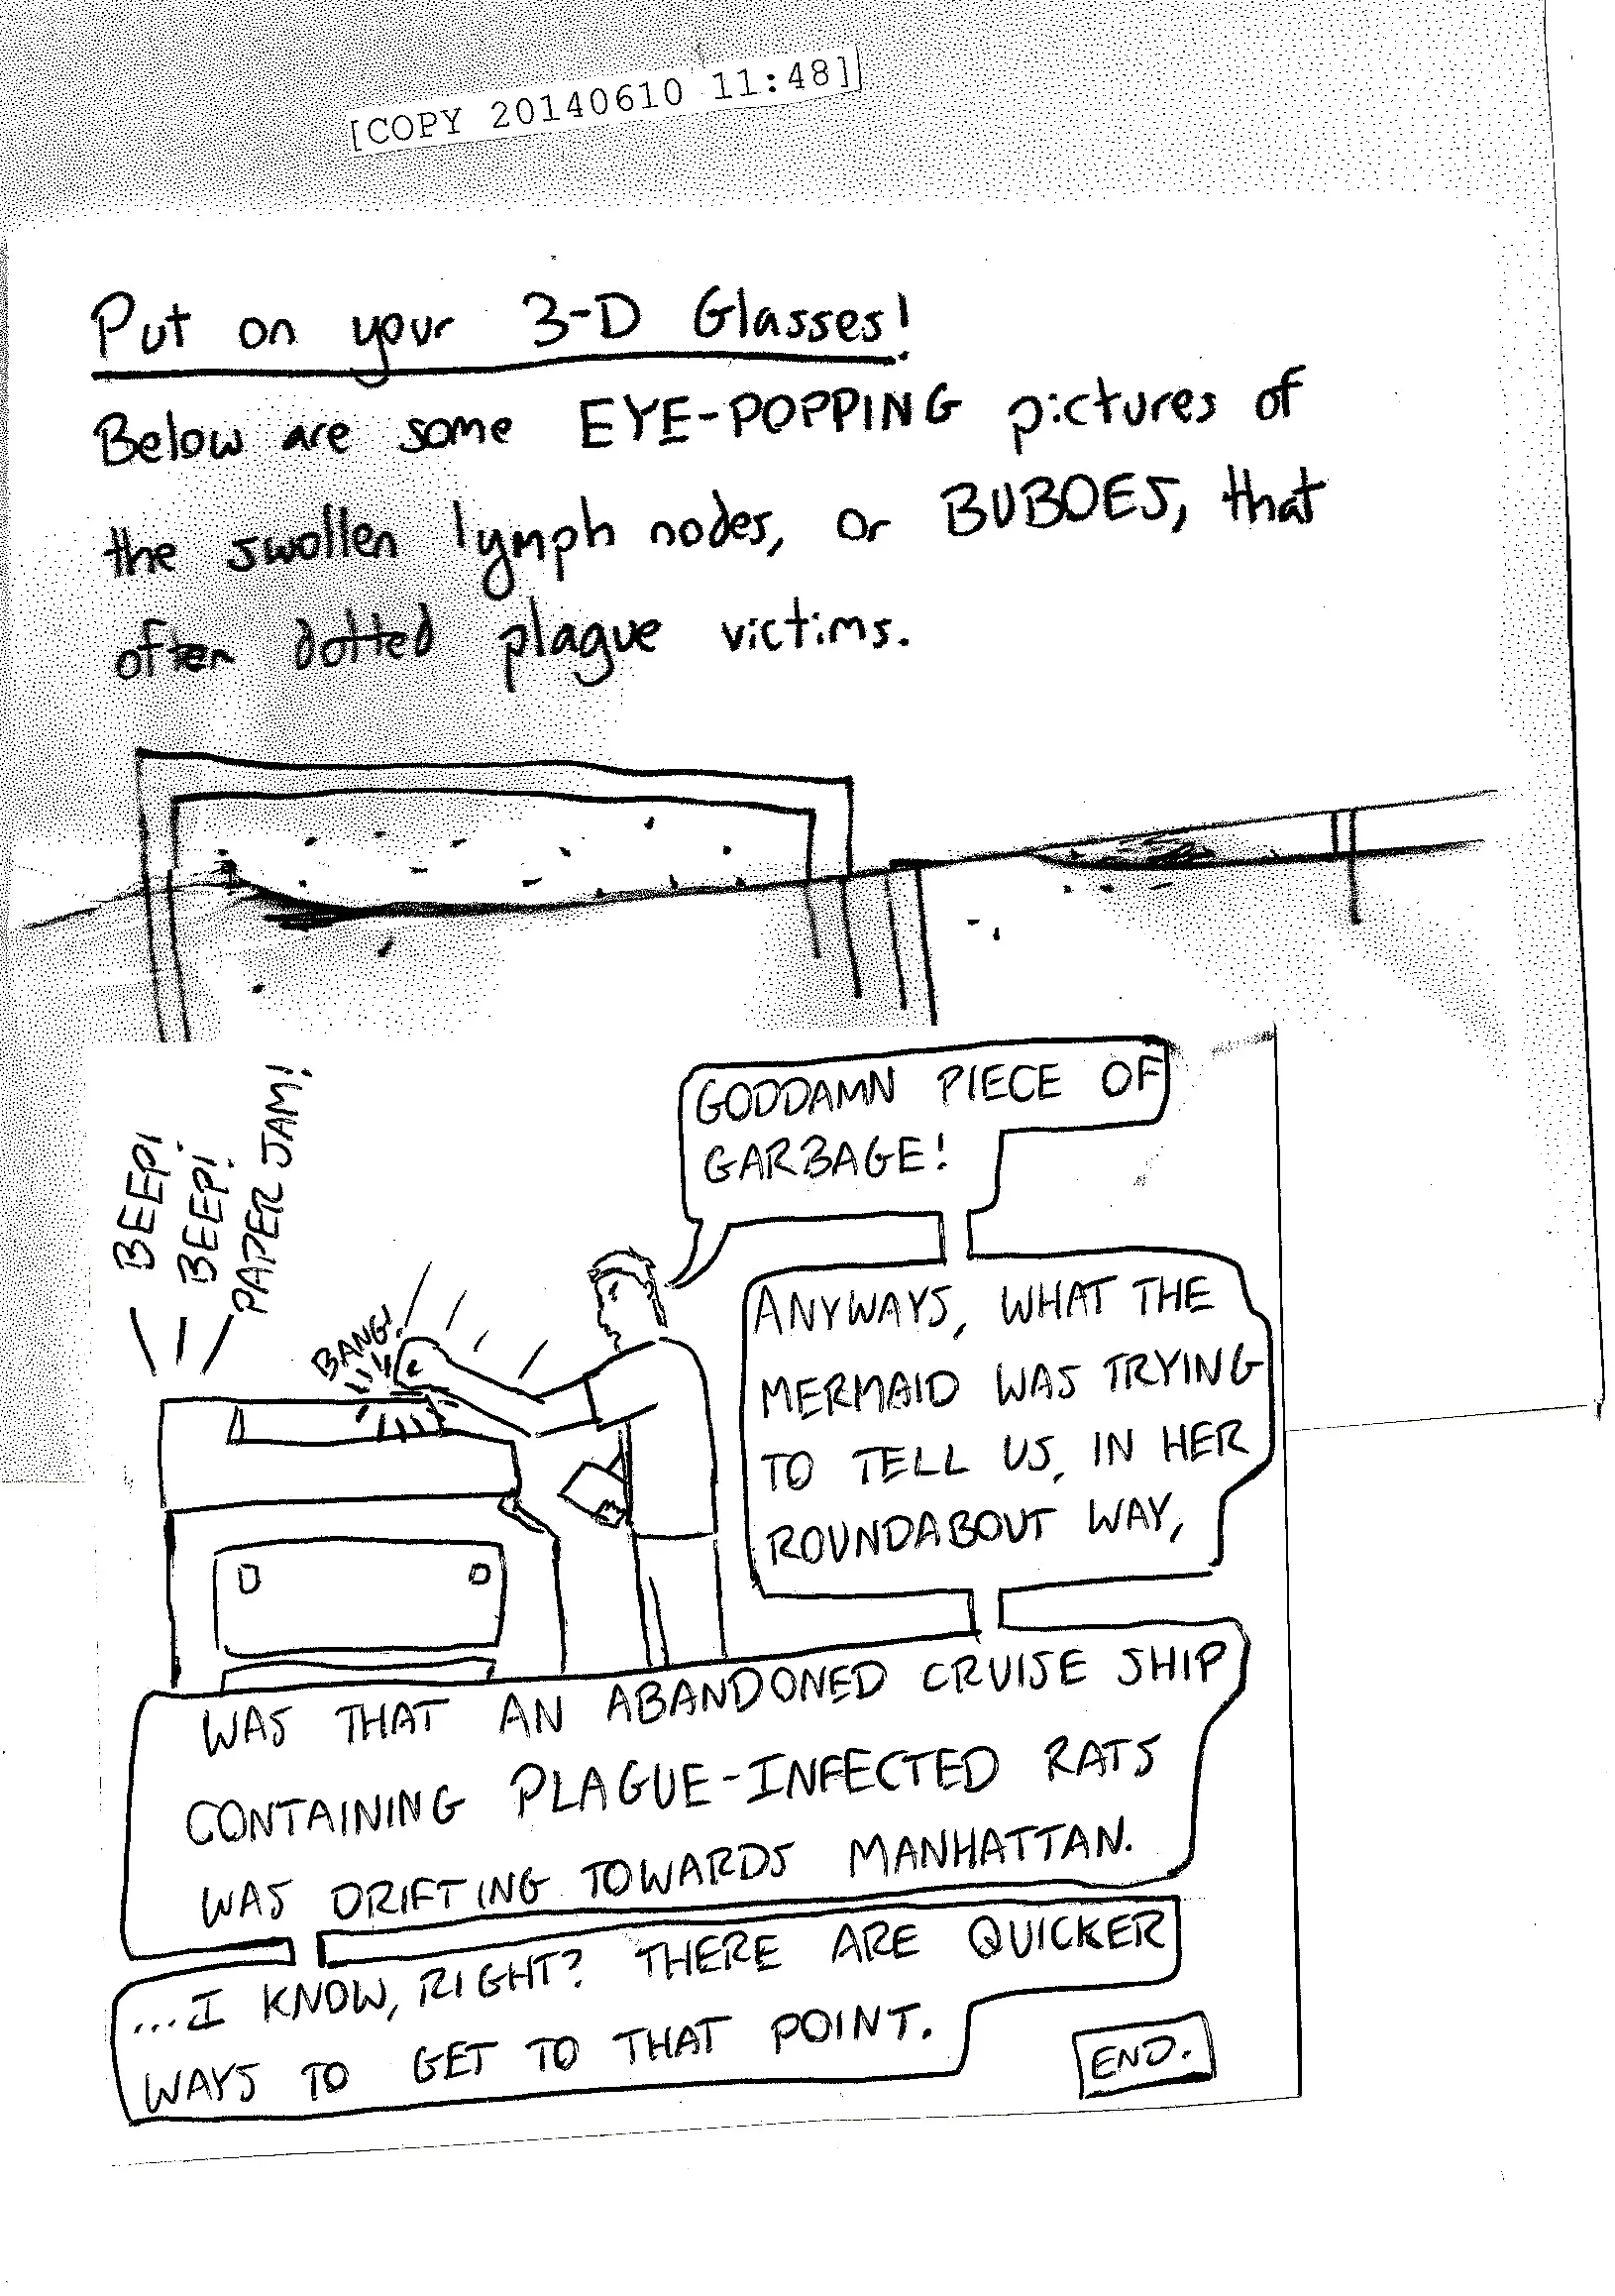 [COPY 20140610 11:48]
Put on your 3-D Glasses!
Below are some EYE-POPPING pictures of
the swollen lymph nodes, or BUBOES, that
often dotted plague victims.
BEEP!
BEEP!
PAPER JAM!
BANG!
GODDAMN PIECE OF
GARBAGE!
ANYWAYS, WHAT THE
MERMAID WAS TRYING
TO TELL US, IN HER
ROUNDABOUT WAY,
WAS THAT AN ABANDONED CRUISE SHIP
CONTAINING PLAGUE-INFECTED RATS
WAS DRIFTING TOWARDS MANHATTAN.
...I KNOW, RIGHT? THERE ARE QUICKER
WAYS TO GET TO THAT POINT.
END.